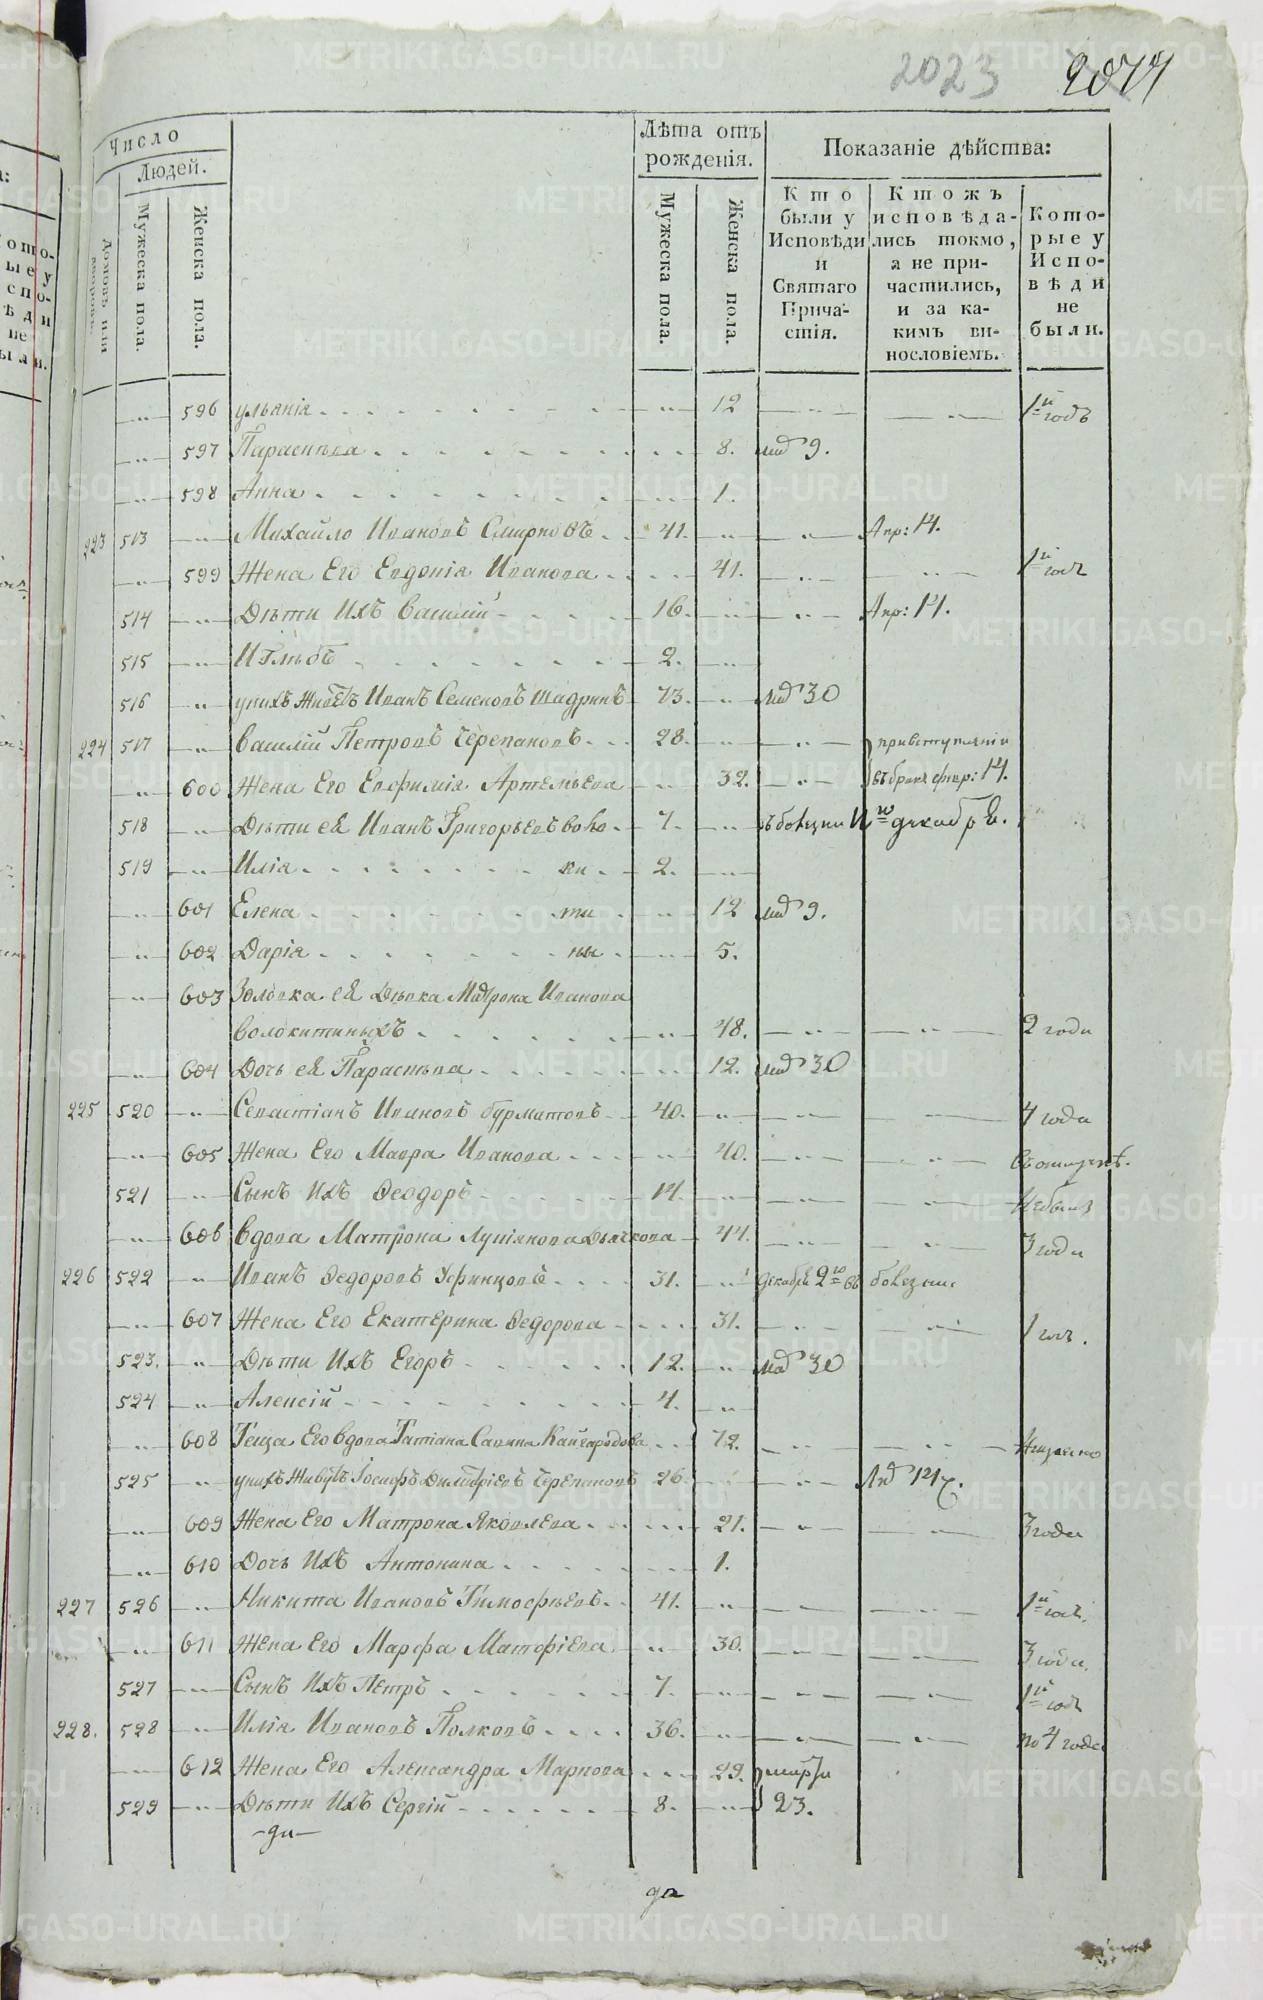 2023 2077
Число
Людей.
Домовъ или
Мужеска пола.
Женска пола.
Лѣта отъ
рожденія.
Мужеска пола.
Женска пола.
Показаніе дѣйства:
Кто
были у
Исповѣди
и
Святаго
Прича-
стія.
Ктожъ
исповѣда-
лись токмо,
а не при-
частились,
и за ка-
кимъ ви-
нословіемъ.
Кото-
рые у
Испо-
вѣди
не
были.
596 ульянія 12 1й годъ
597 Параскева 8. 9.
598 Анна 1.
223 513 Михайло Ивановъ Смирновъ 41. Апр: 14.
599 Жена Его Евдокія Иванова 41. 1й
514 Дѣти Ихъ Василій 16. Апр: 14.
515 И Глѣбъ 2.
516 у нихъ живетъ Иванъ Семеновъ Шадринъ 73. 30
224 517 Василій Петровъ Черепановъ 28. при вступленіи
600 Жена Его Евфимія Артемьева 32. въ бракъ февр: 14.
518 Дѣти ея Иванъ Григорьевъ воло 7. въ болезни го декабрѣ.
519 Илія ки 2.
601 Елена ти 12 9.
602 Дарія ны 5.
603 Золовка ея Дѣвка Матрона Иванова
Волокитиныхъ 48. 2 года
604 Дочь ея Параскева 12. 30
225 520 Севастіанъ Ивановъ Бурматовъ 40. 4 года
605 Жена Его Мавра Иванова 40.
521 Сынъ Ихъ Ѳеодоръ 14.
606 Вдова Матрона Лукіянова Дьячкова 44. 3 года
226 522 Иванъ Ѳедоровъ Уфинцовъ 31. декабря 2го въ болезни
607 Жена Его Екатерина Ѳедорова 31. 1
523. Дѣти Ихъ Егоръ 12. 30
524 Алексій 4.
608 Теща Его вдова Татіана Савина Кайгародова 72.
525 у нихъ живутъ Іосифъ Димитріевъ Черепановъ 26. 14
609 Жена Его Матрона Яковлева 21. 3 года
610 Дочь Ихъ Антонина 1.
227 526 Никита Ивановъ Тимофѣевъ 41. 1й
611 Жена Его Марфа Матфіева 30. 3 года.
527 Сынъ Ихъ Петръ 7. 1й годъ
228. 528 Илія Ивановъ Полковъ 36. 4 года
612 Жена Его Александра Маркова 29. марта
529 Дѣти Ихъ Сергій 8. 23.
да
да
METRIKI.GASO-URAL.RU